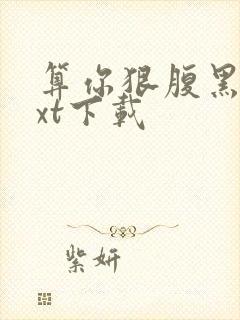 算你狠腹黑
xt下载
紫妍